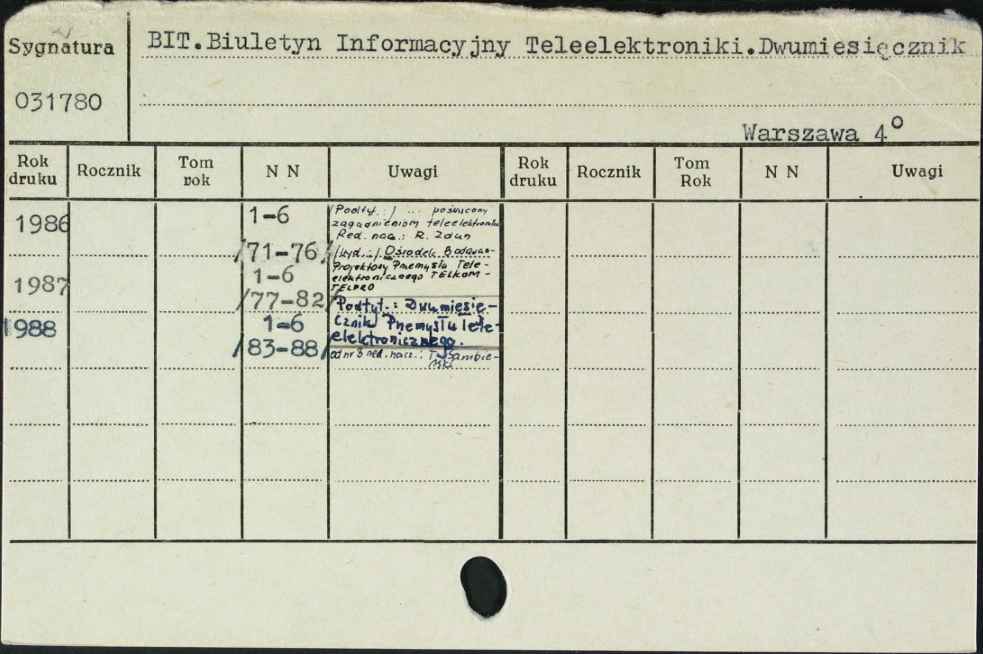 Sygnatura
031780
BIT.Biuletyn Informacyjny Teleelektroniki.Dwumiesięcznik
Warszawa 4°
Rok druku Rocznik Tom rok N N Uwagi Rok druku Rocznik Tom Rok N N Uwagi
1986 1-6 /Podtyt.:/ ... poświęcony
zagadnieniom teleelektroniki
Red. nacz.: R. Zdun
/71-76/ /Wyd.:/ Ośrodek Badawczo-
Projektowy Przemysłu Tele-
1987 1-6 elektronicznego TELKOM-
TELPRO
/77-82/ Podtyt.: Dwumiesię-
1988 1-6 cznik Przemysłu Tele-
elektronicznego.
/83-88/ od nr 3 red. nacz.: